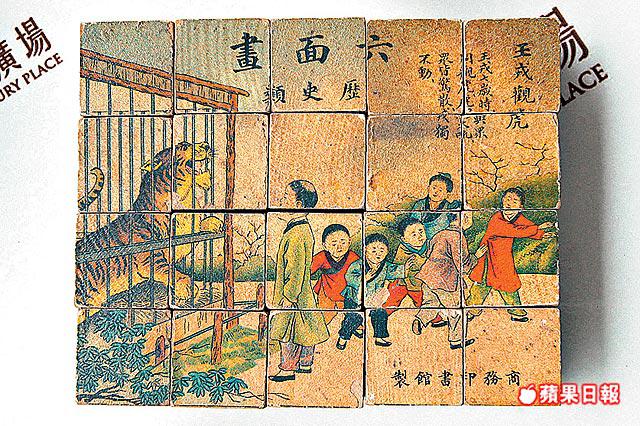 廣場
URY PLACE
場
PLACE
六面畫
歷史類
王戎觀虎
王戎歲時
衆皆驚散戎獨
不動
商務印書館製
蘋果日報